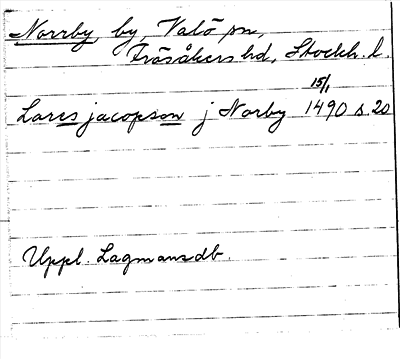 Norrby by, Valö sn,
Frösåkers hd, Stockh. l.
15/1
Lares jacopson j Norby 1490 s. 20
Uppl. Lagmansdb.